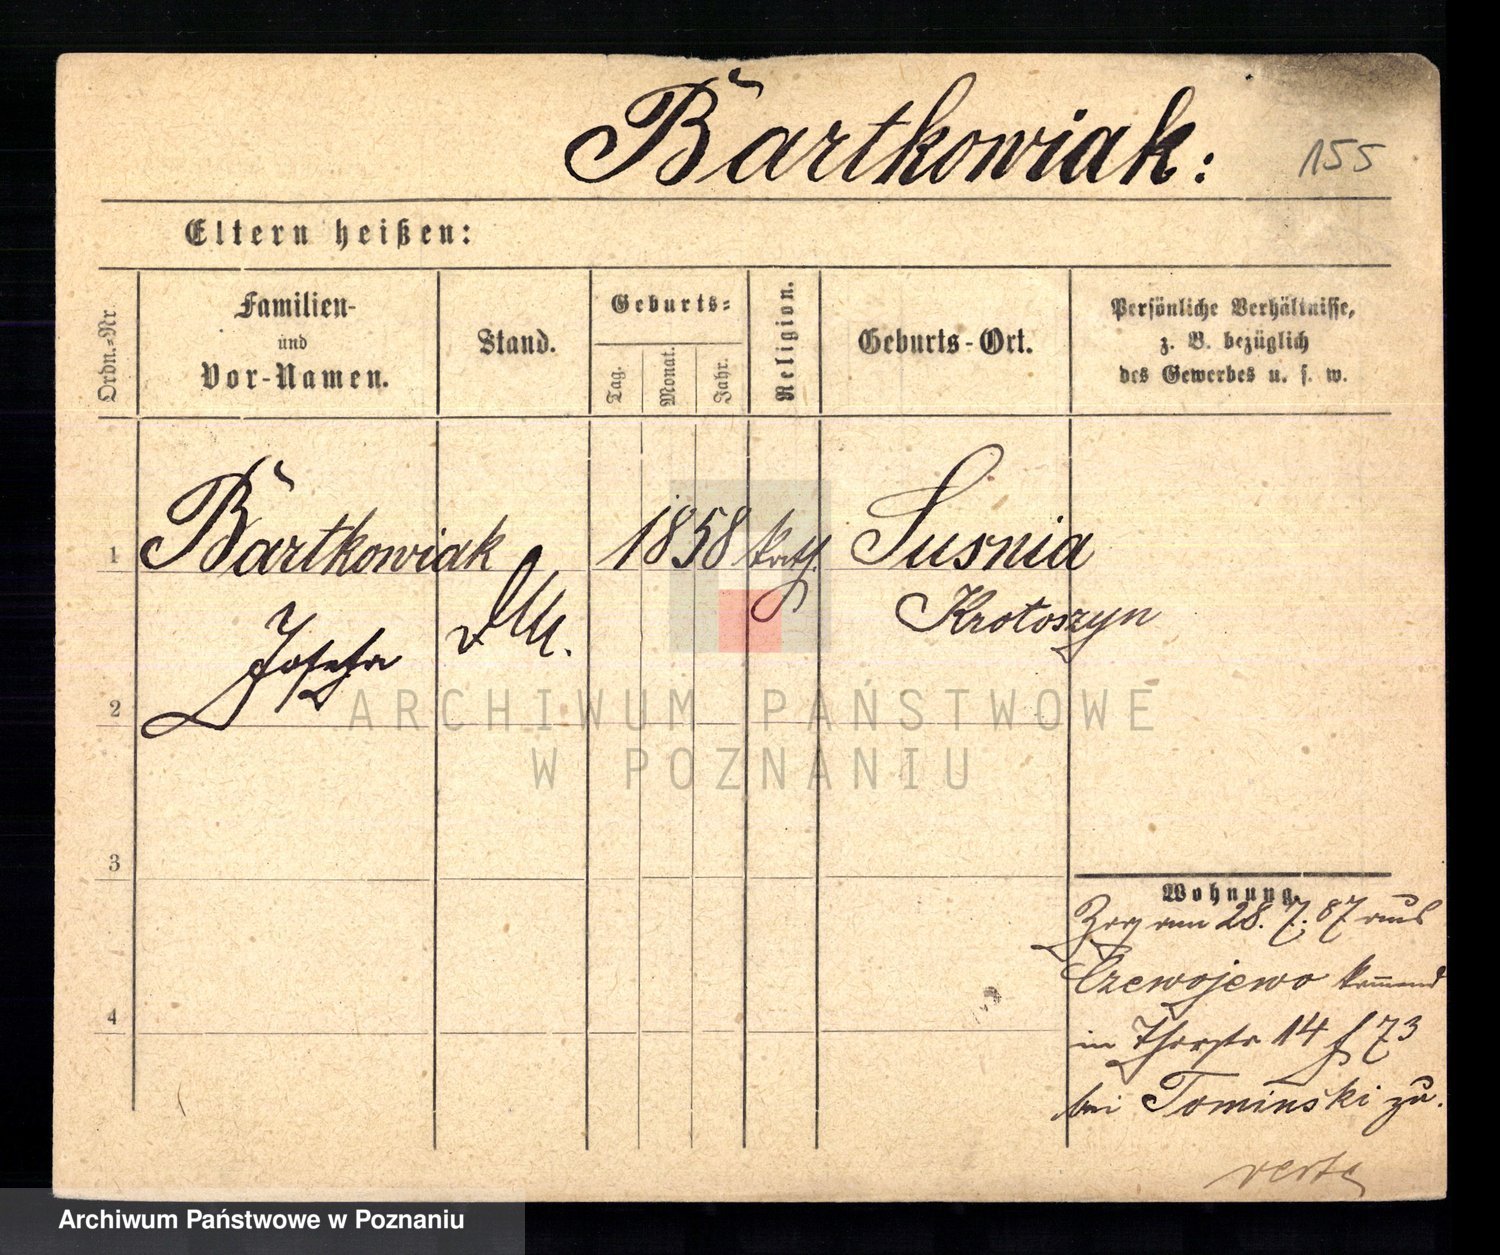 Bartkowiak:
155
Eltern heißen:
Ordn.-Nr
Familien-
und
Vor-Namen.
Stand.
Geburts-
Tag.
Monat.
Jahr.
Religion.
Geburts-Ort.
Persönliche Verhältnisse,
z. B. bezüglich
des Gewerbes u. s. w.
1
Bartkowiak
1858
kath.
Susnia
Josefa
Krotoszyn
2
ARCHIWUM PAŃSTWOWE
W POZNANIU
3
Wohnung.
Zog am 28.7.87 aus
Czewojewo kommend
4
in Thorstr 14 f 73
bei Tominski zu.
verte
Archiwum Państwowe w Poznaniu